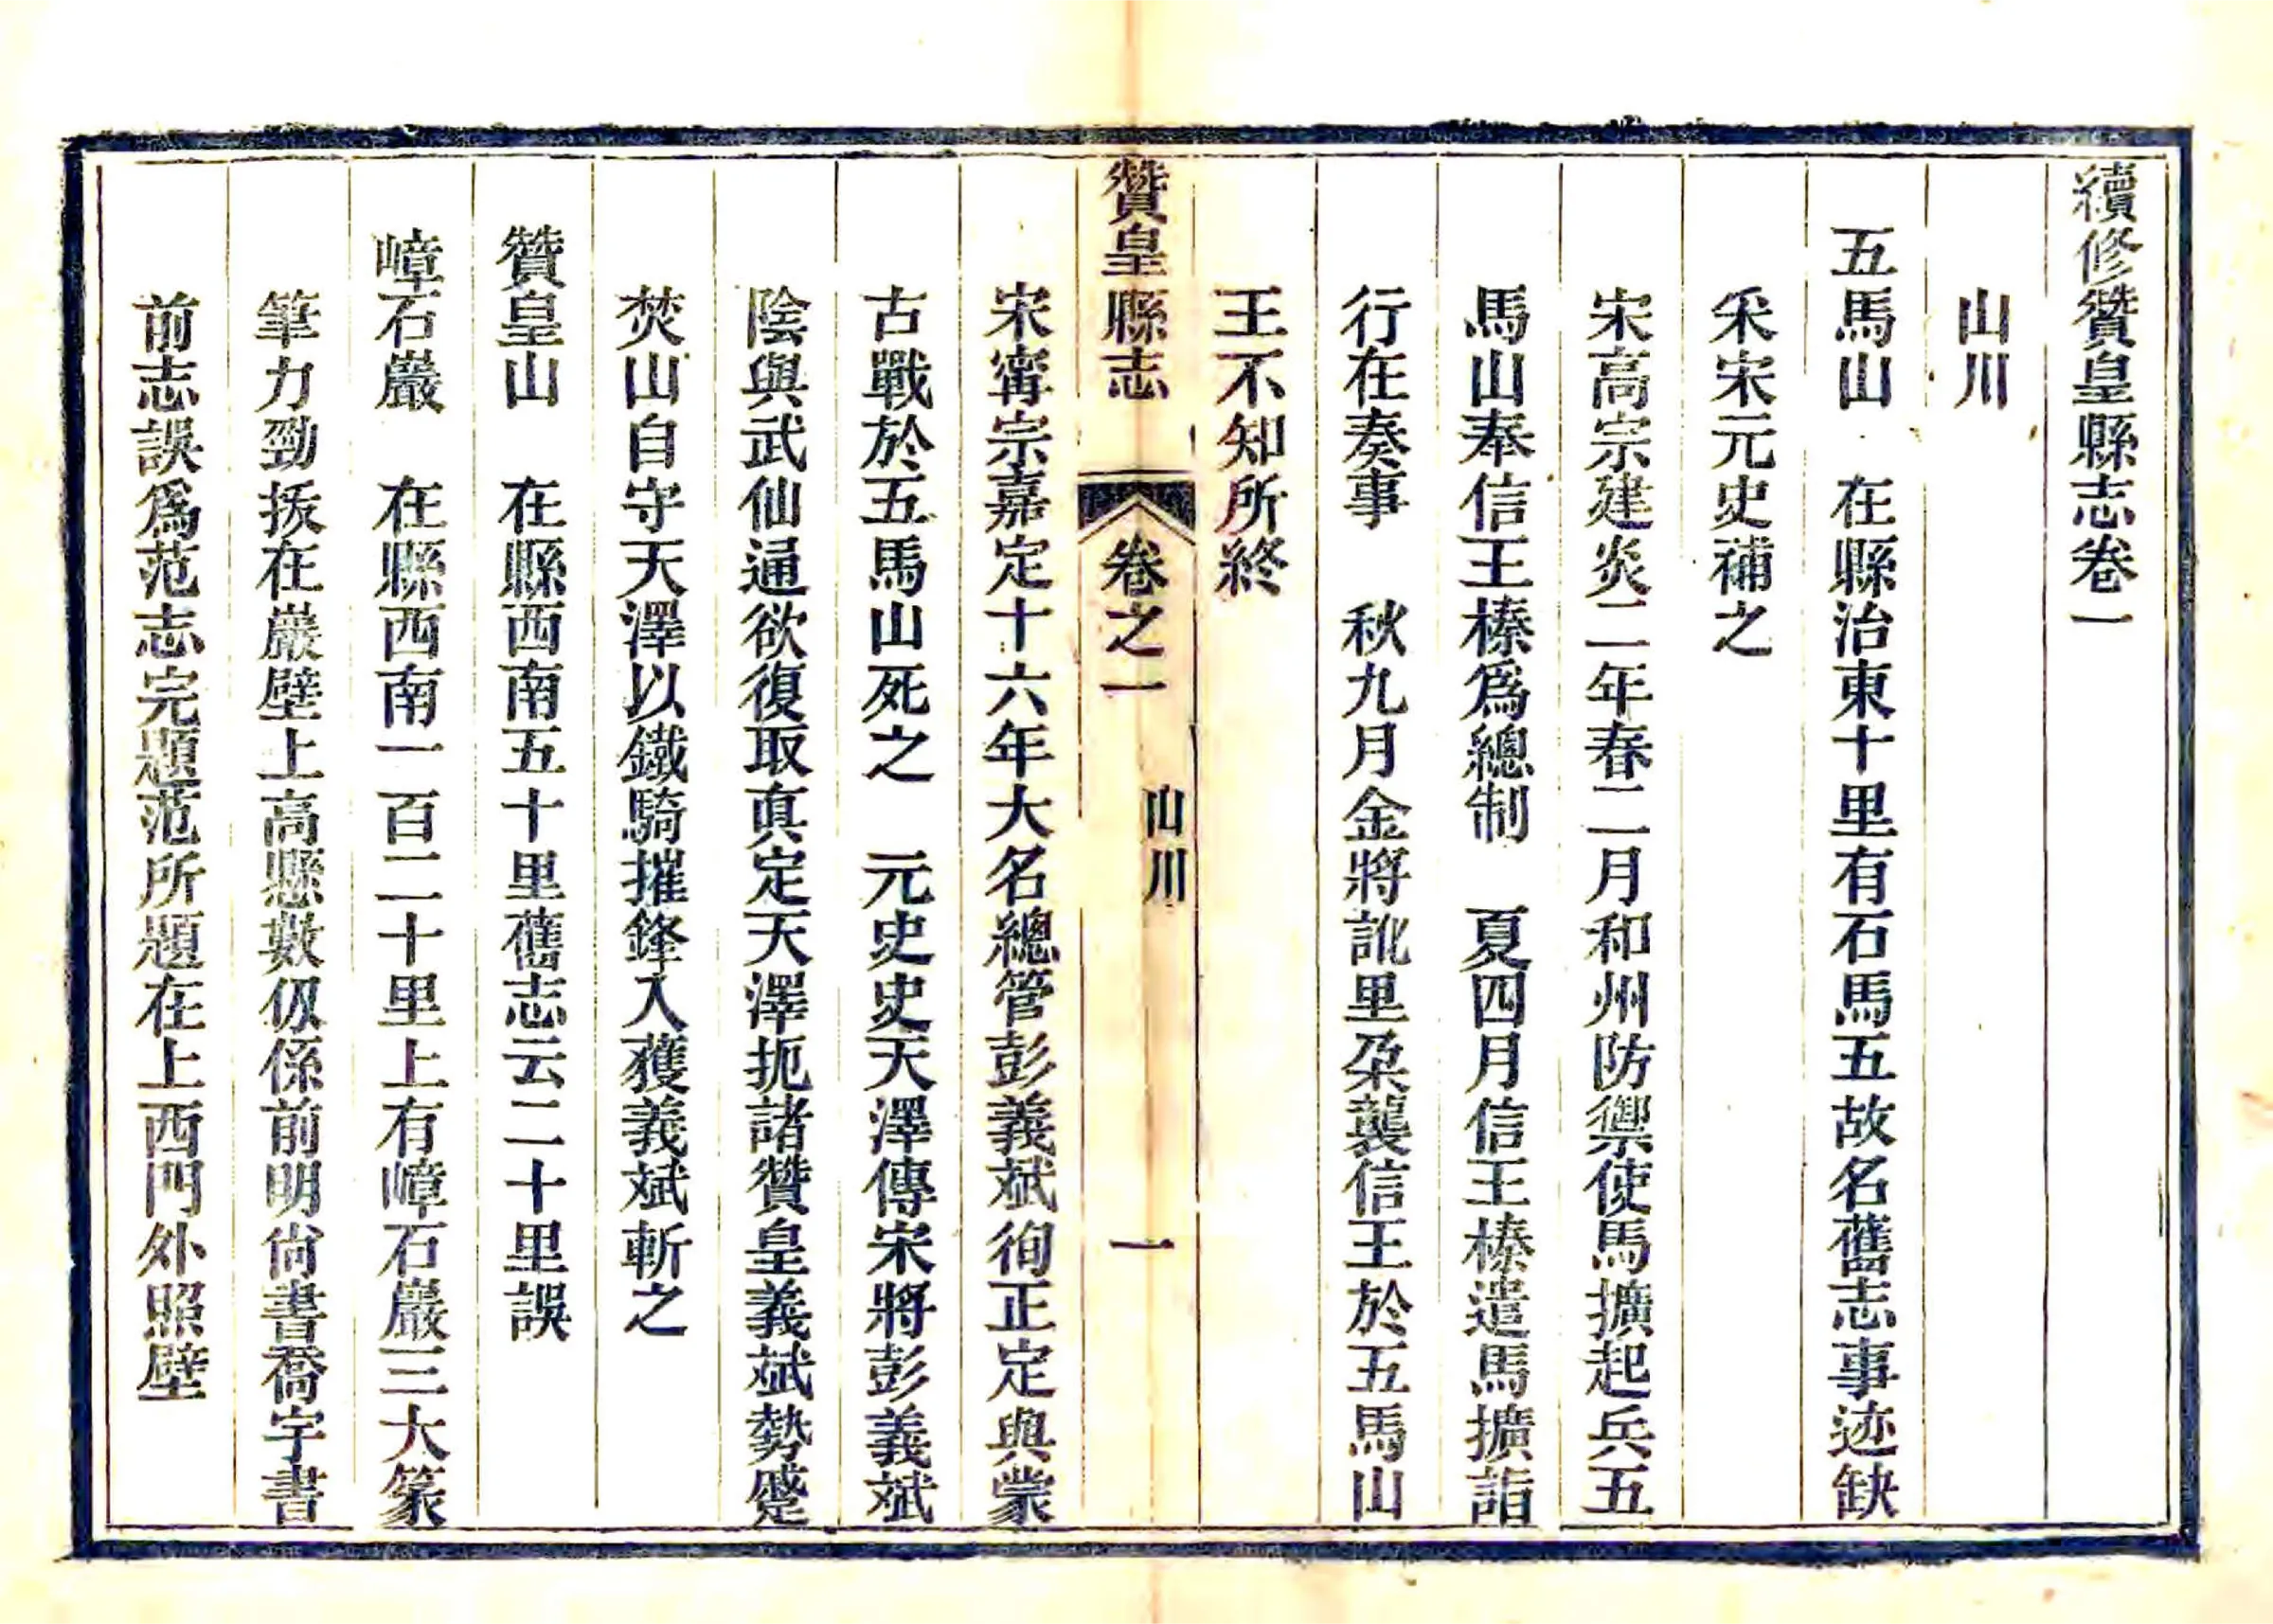 續修贊皇縣志卷一
山川
五馬山　在縣治東十里有石馬五故名舊志事迹缺
采宋元史補之
宋高宗建炎二年春二月和州防禦使馬擴起兵五
馬山奉信王榛爲總制　夏四月信王榛遣馬擴詣
行在奏事　秋九月金將訛里朶襲信王於五馬山
王不知所終
贊皇縣志　卷之一　山川　一
宋寗宗嘉定十六年大名總管彭義斌徇正定與蒙
古戰於五馬山死之　元史史天澤傳宋將彭義斌
陰與武仙通欲復取眞定天澤扼諸贊皇義斌勢蹙
焚山自守天澤以鐵騎摧鋒入獲義斌斬之
贊皇山　在縣西南五十里舊志云二十里誤
嶂石巖　在縣西南一百二十里上有嶂石巖三大篆
筆力勁拔在巖壁上高懸數仭係前明尙書喬宇書
前志誤爲范志完題范所題在上西門外照壁